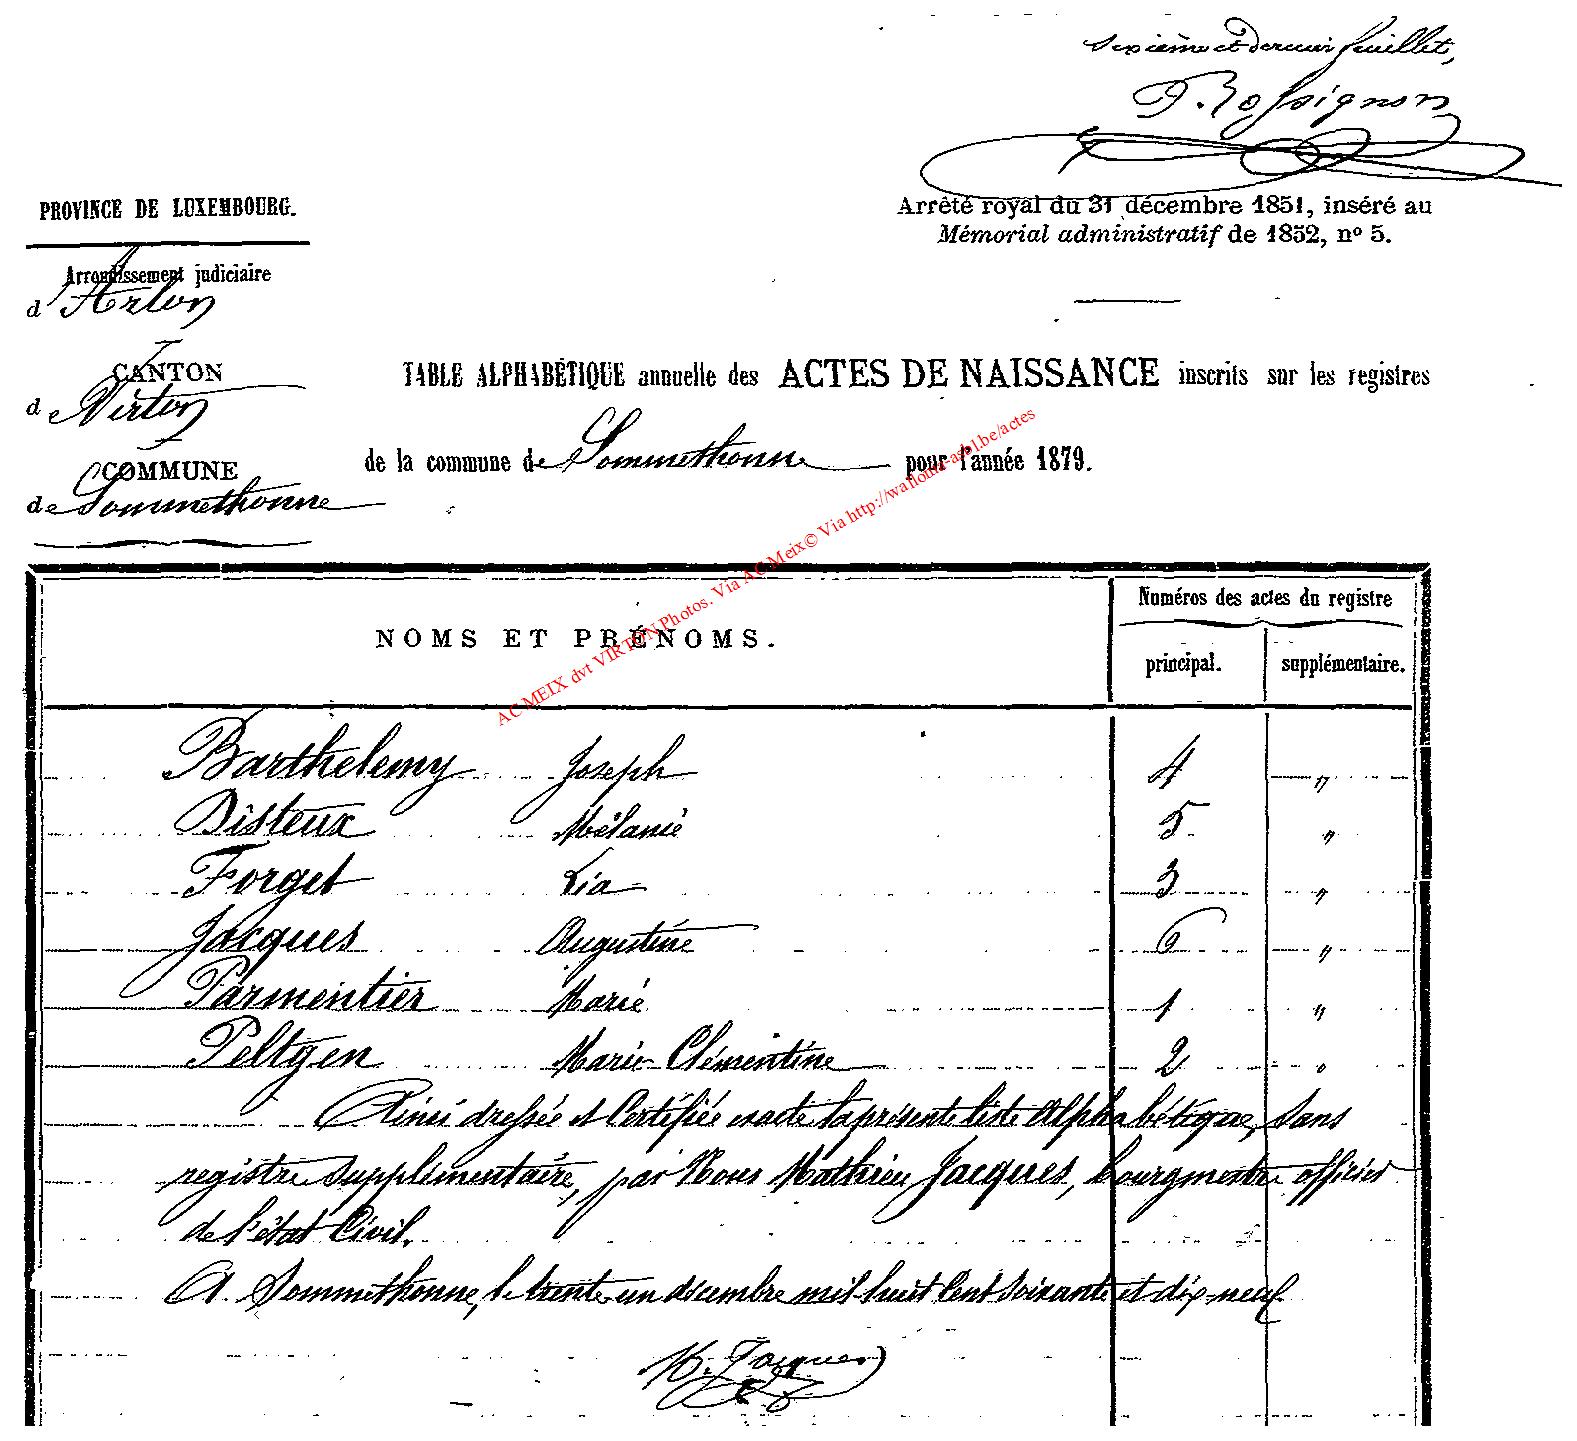 Sixième et dernier feuillet,
F. Rossignon
PROVINCE DE LUXEMBOURG.
Arrêté royal du 31 décembre 1851, inséré au
Mémorial administratif de 1852, nº 5.
Arrondissement judiciaire
d'Arlon
CANTON
de Virton
COMMUNE
de Sommethonne
TABLE ALPHABÉTIQUE annuelle des ACTES DE NAISSANCE inscrits sur les registres
de la commune de Sommethonne pour l'année 1879.
AC MEIX dvt VIRTON Photos. Via AC Meix© Via http://wallonia-asbl.be/actes
NOMS ET PRÉNOMS.
Numéros des actes du registre
principal. supplémentaire.
Barthelemy Joseph 4 "
Disteux Mélanie 5 "
Forget Lia 3 "
Jacques Augustine 6 "
Parmentier Marie 1 "
Peltgen Marie Clémentine 2 "
Ainsi dressée et Certifiée exacte la présente liste Alphabétique, sans
registre supplémentaire, par Nous Mathieu Jacques, bourgmestre officier
de l'état Civil.
A Sommethonne, le trente un décembre mil huit Cent soixante et dix neuf
M. Jacques